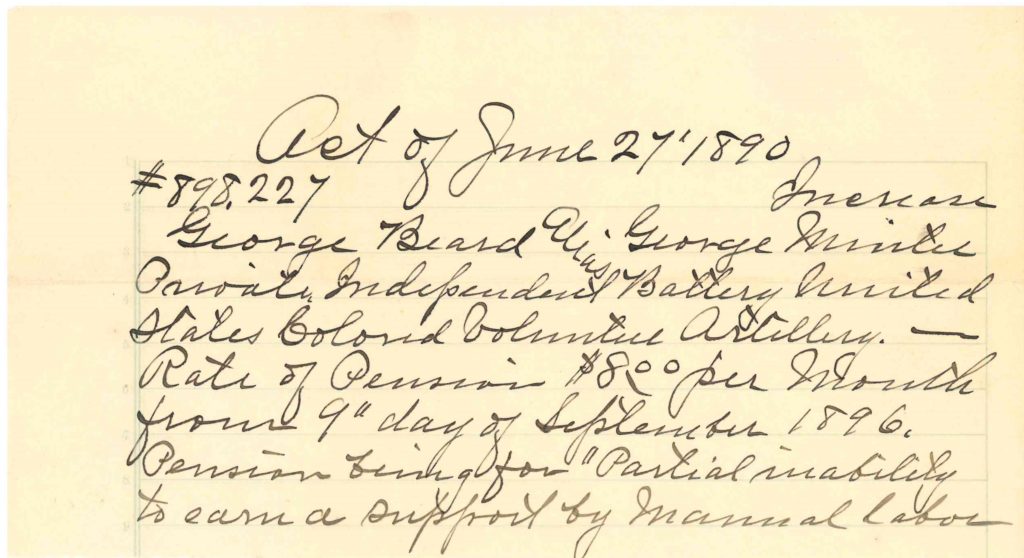 Act of June 27" 1890
#898.227 Increase
George Beard Alias George Minter
Private, Independent Battery United
States Colored Volunteer Artillery. —
Rate of Pension $8.00 per Month
from 9" day of September 1896.
Pension being for "Partial inability
to earn a support by Manual labor